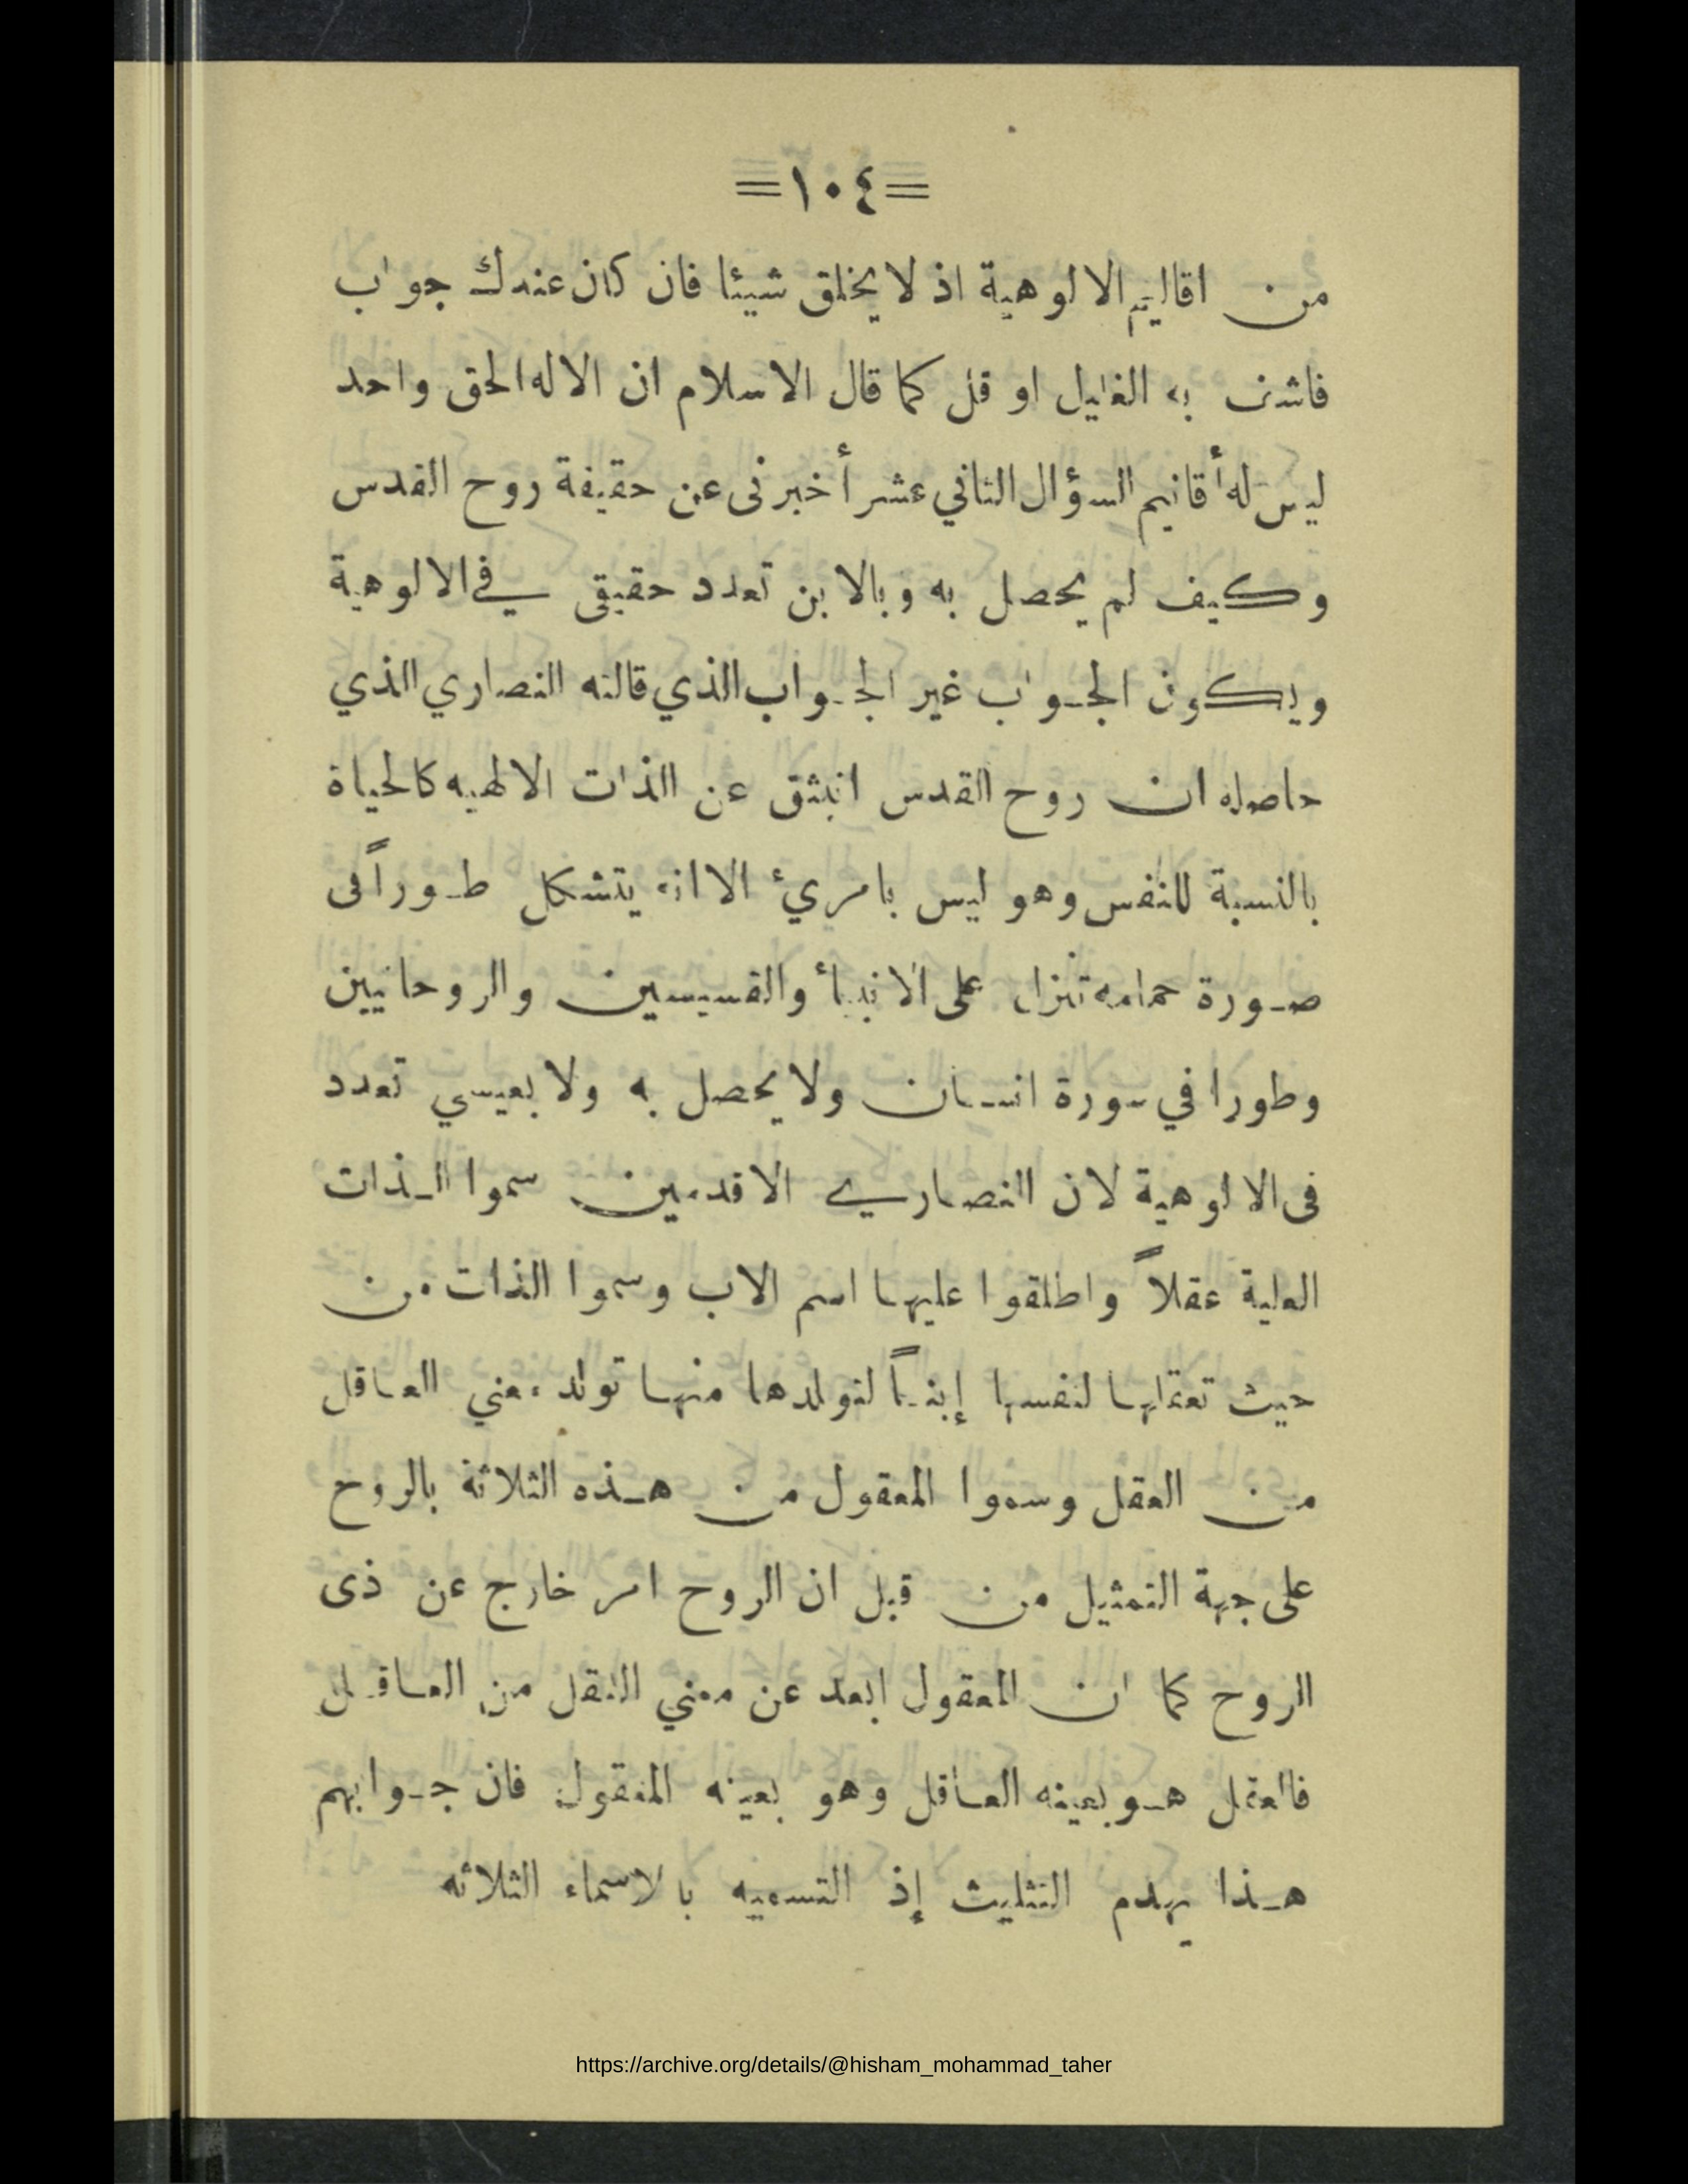 =١٠٤=
من اقاليم الالوهية اذ لا يخلق شيئا فان كان عندك جواب
فاشف به الغليل او قل كما قال الاسلام ان الاله الحق واحد
ليس له أقانيم السؤال الثاني عشر أخبرنى عن حقيقة روح القدس
وكيف لم يحصل به وبالابن تعدد حقيقى في الالوهية
ويكون الجواب غير الجواب الذي قالته النصاري الذي
حاصله ان روح القدس انبثق عن الذات الالهيه كالحياة
بالنسبة للنفس وهو ليس بامريء الا انه يتشكل طوراً فى
صورة حمامه تنزل على الانبيأ والقسيسين والروحانيين
وطورا في سورة انسان ولا يحصل به ولا بعيسي تعدد
فى الالوهية لان النصاري الاقدمين سموا الذات
العلية عقلاً واطلقوا عليها اسم الاب وسموا الذات من
حيث تعقلها لنفسها إبناً لتولدها منها تولد معني العاقل
من العقل وسموا المعقول من هذه الثلاثة بالروح
على جهة التمثيل من قبل ان الروح امر خارج عن ذى
الروح كما ان المعقول ابعد عن معني العقل من العاقل
فالعقل هو بعينه العاقل وهو بعينه المعقول فان جوابهم
هذا يهدم التثليث إذ التسميه بالاسماء الثلاثه
https://archive.org/details/@hisham_mohammad_taher